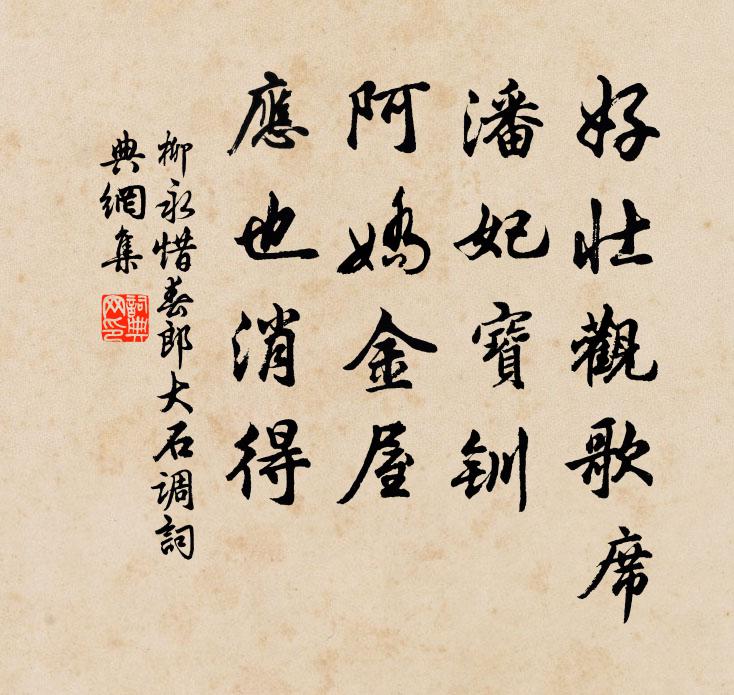 好壯觀歌席
潘妃寶釧
阿嬌金屋
應也消得
柳永惜春郎大石调詞
典網集
詞典
网印